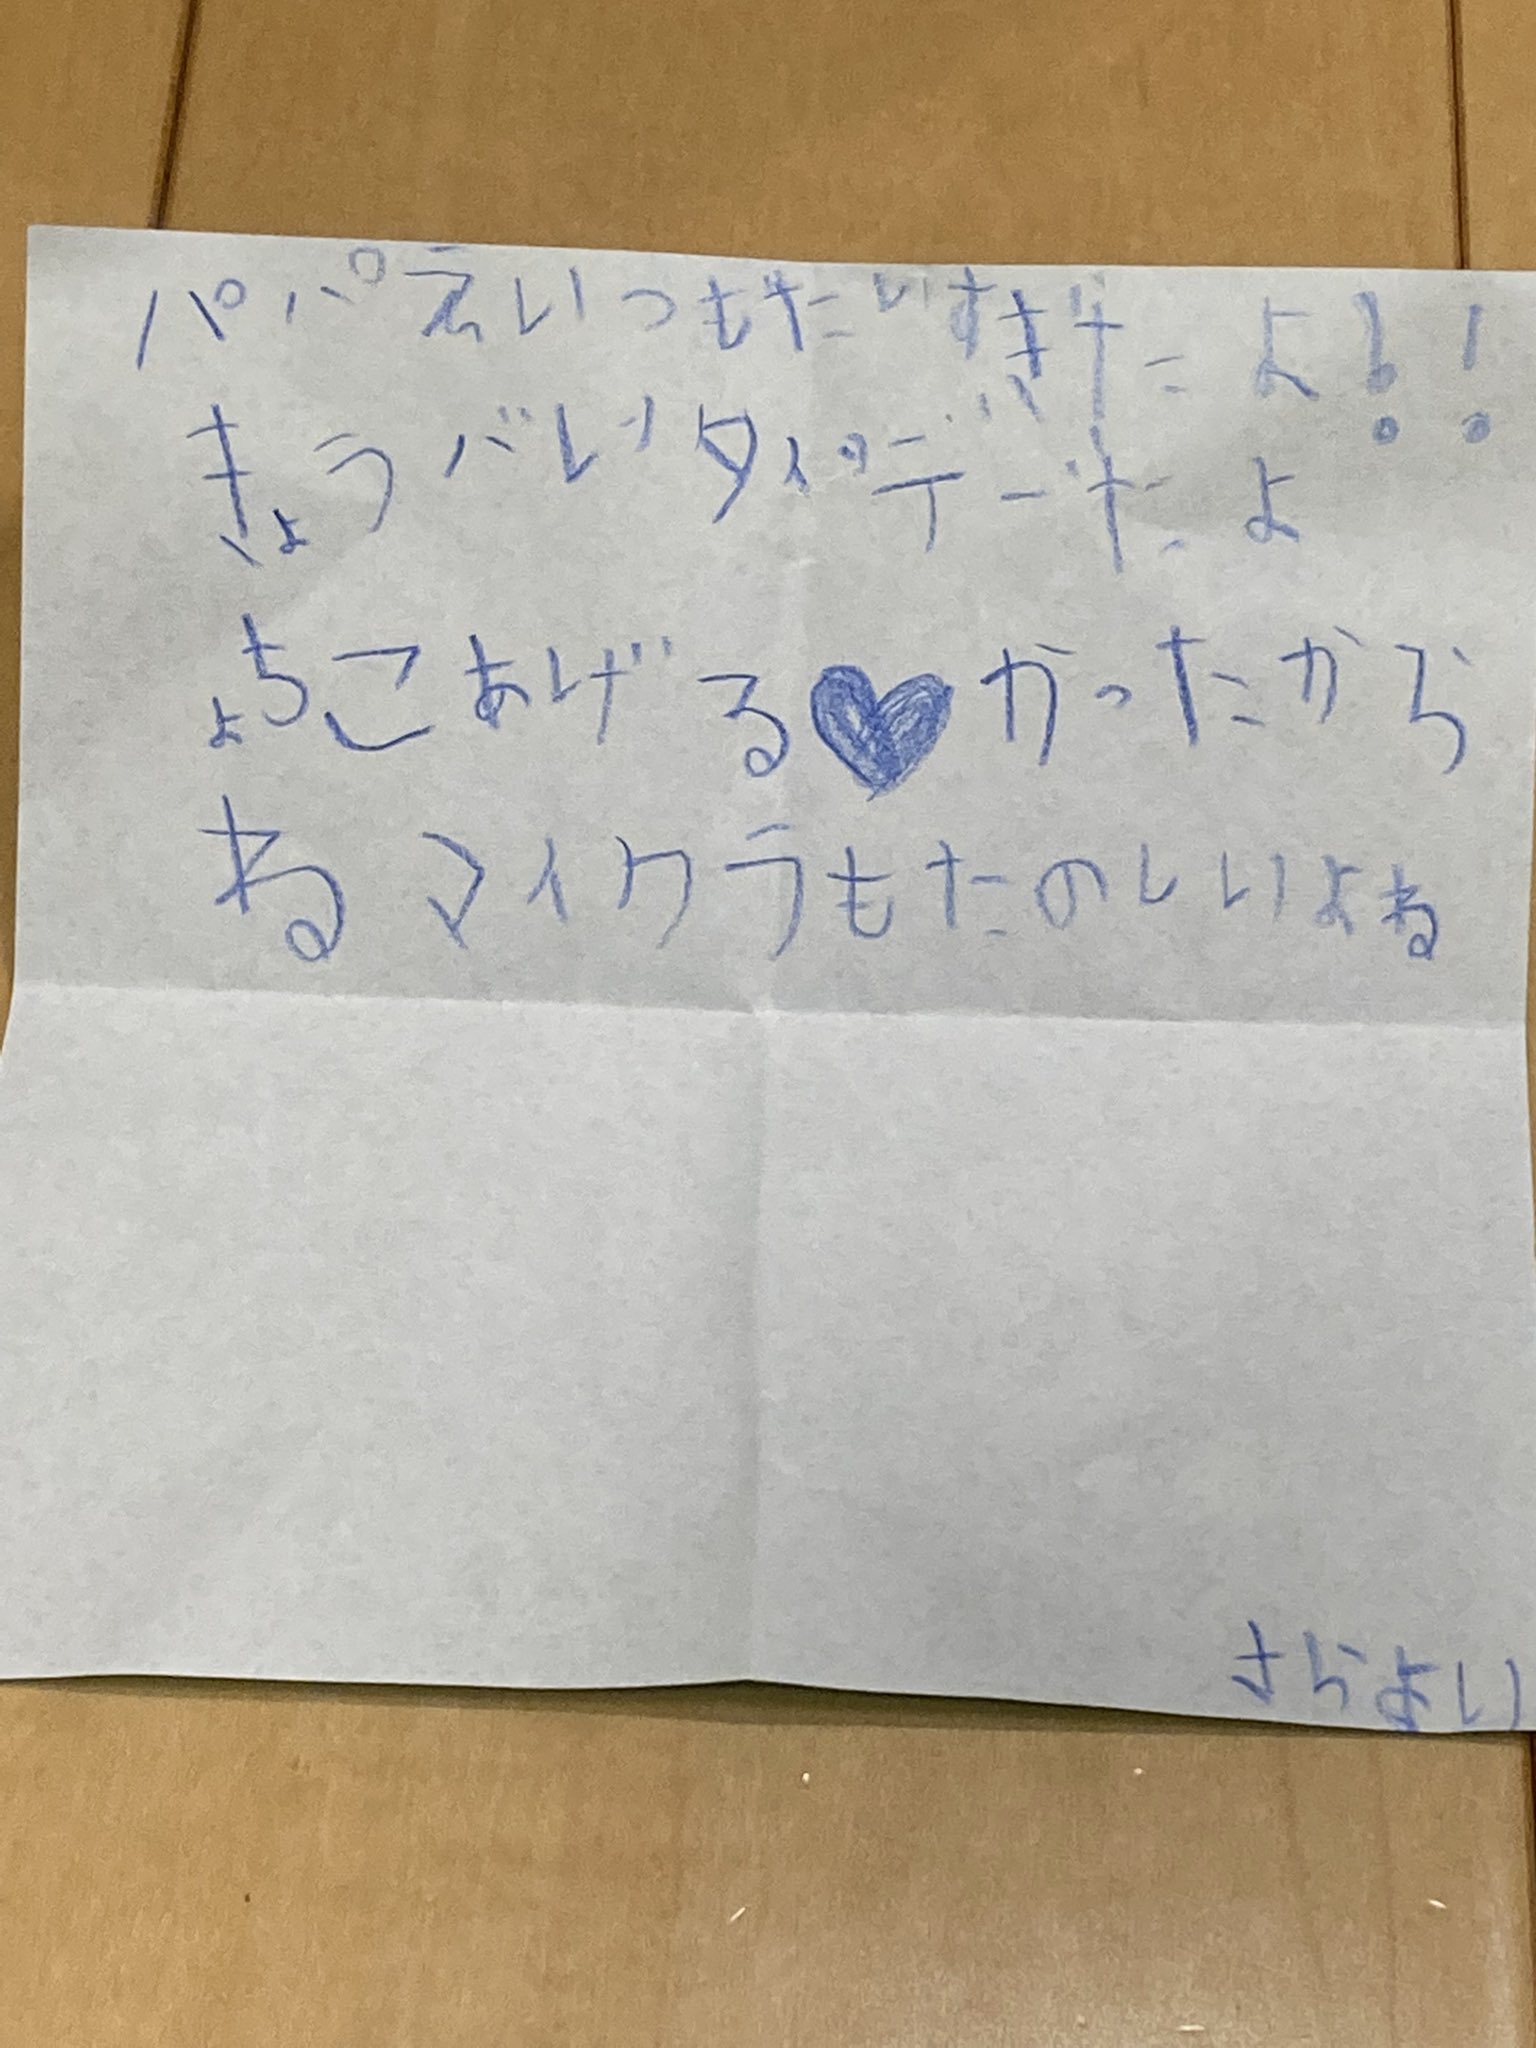 パパえいつもだいすきだよ!!
きょうバレンタインデーだよ
ちょこあげる♥かったから
ねマイクラもたのしいよね
さらより